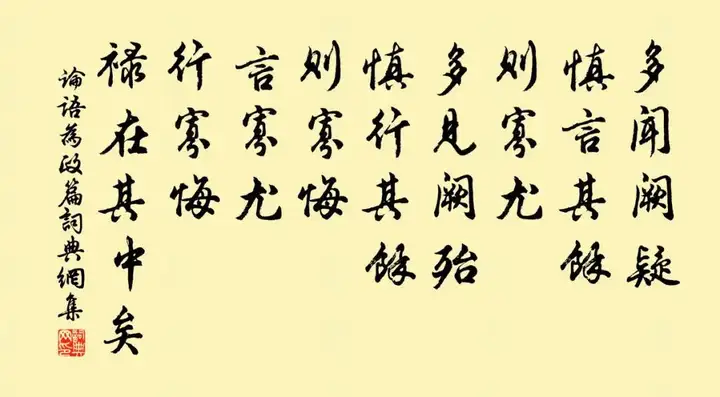 多闻阙疑
慎言其餘
则寡尤
多见阙殆
慎行其餘
则寡悔
言寡尤
行寡悔
禄在其中矣
论语為政篇詞典網集